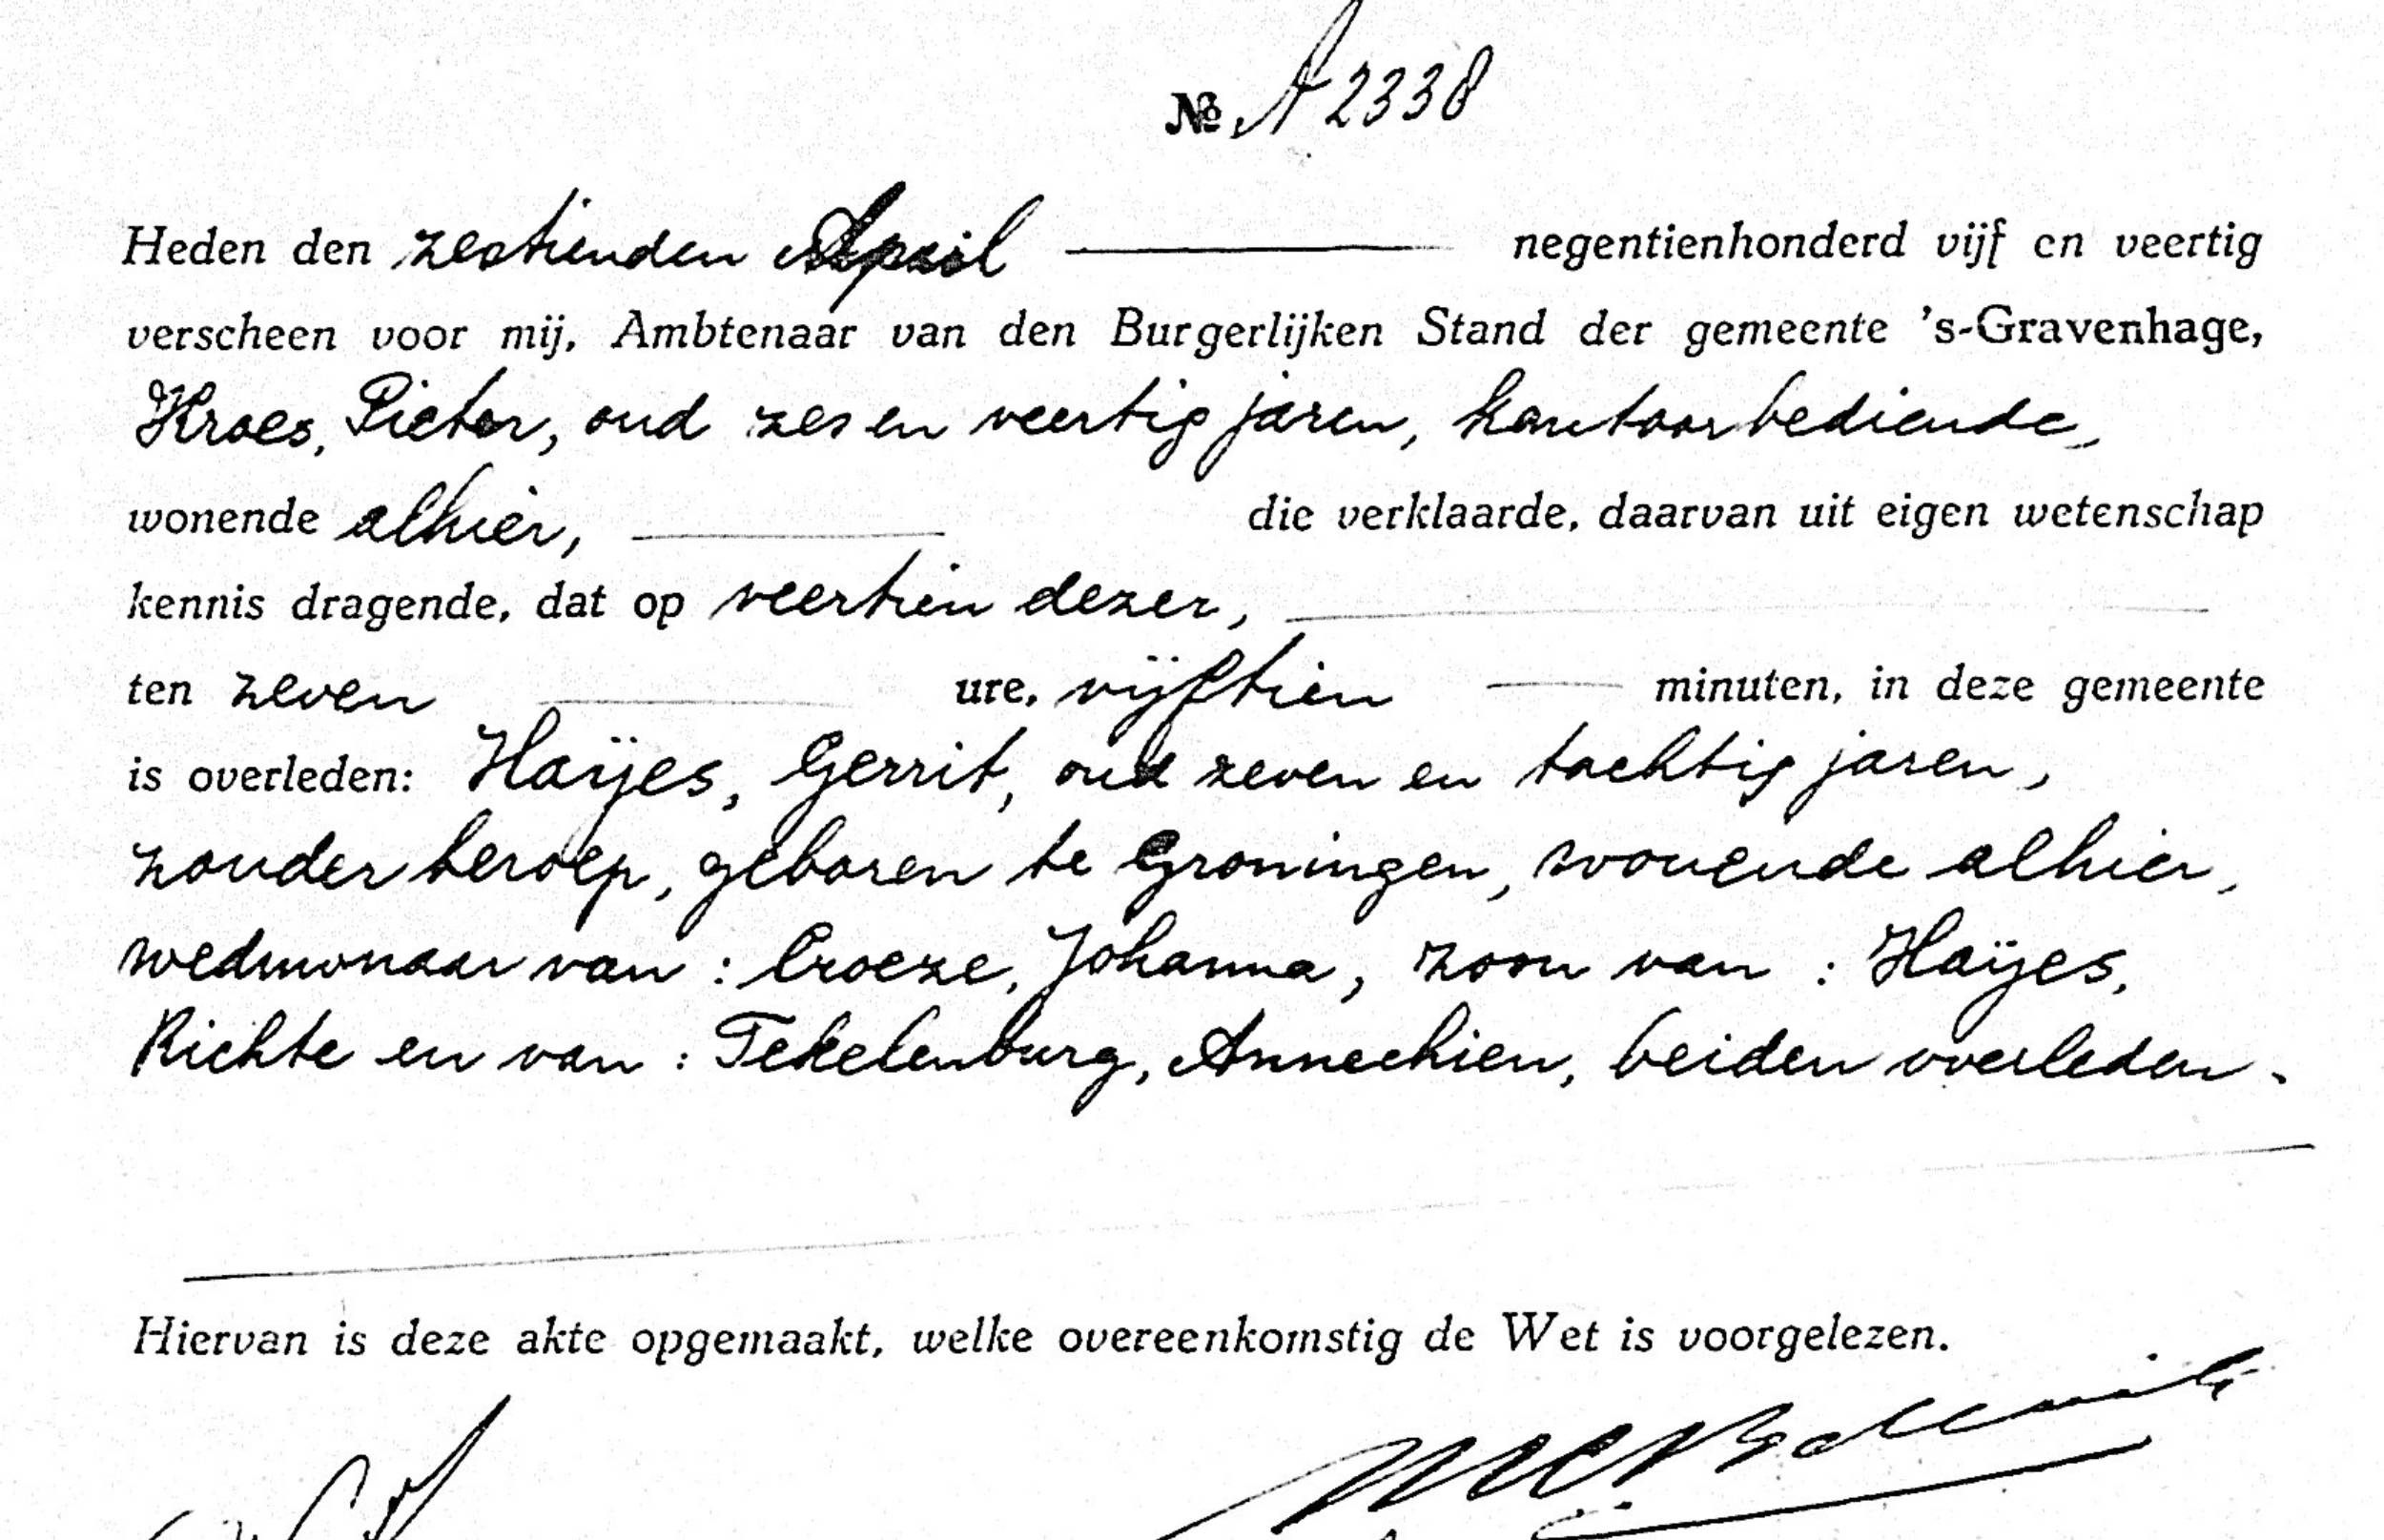 № A 2338
Heden den zestienden April negentienhonderd vijf en veertig
verscheen voor mij, Ambtenaar van den Burgerlijken Stand der gemeente 's-Gravenhage,
Kroes, Pieter, oud zes en veertig jaren, kantoorbediende,
wonende alhier, die verklaarde, daarvan uit eigen wetenschap
kennis dragende, dat op veertien dezer,
ten zeven ure, vijftien minuten, in deze gemeente
is overleden: Haÿes, Gerrit, oud zeven en tachtig jaren,
zonder beroep, geboren te Groningen, wonende alhier,
weduwnaar van: Croeze, Johanna, zoon van: Haÿes,
Richte en van: Tekelenburg, Annechien, beiden overleden.
Hiervan is deze akte opgemaakt, welke overeenkomstig de Wet is voorgelezen.